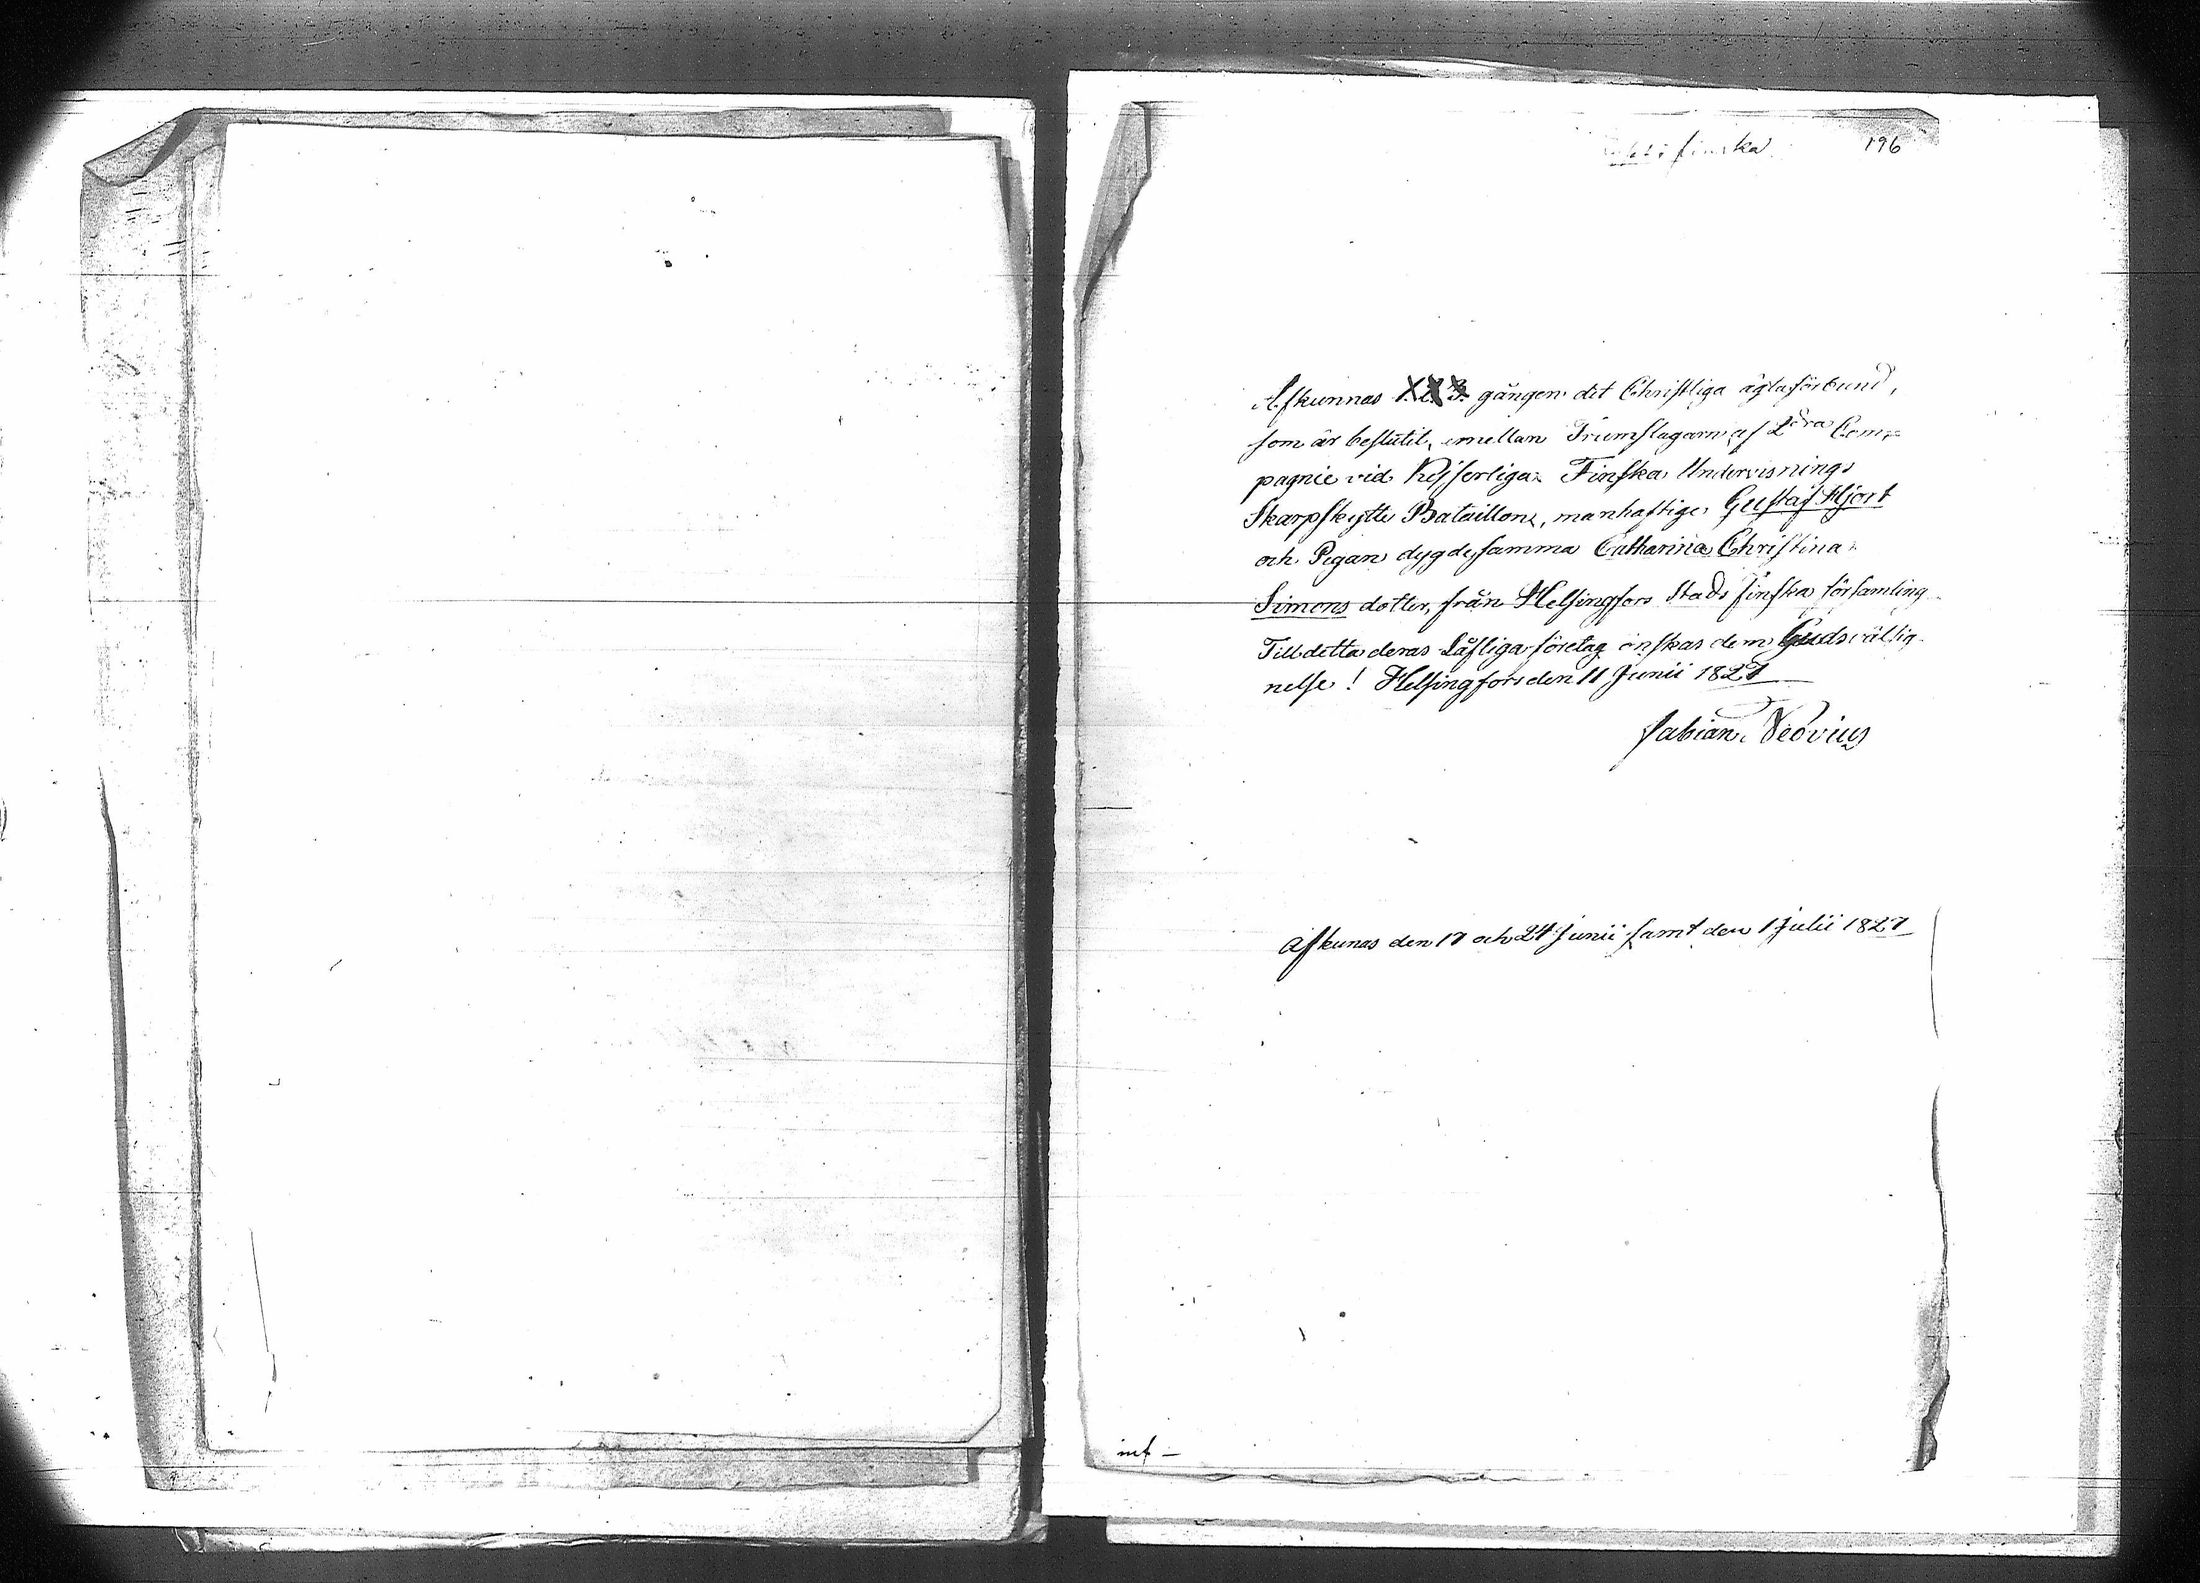 finska
196
Afkunnas 1. 2. 3. gången det Christliga ägtaförbund,
som är beslutit, emellan Trumslagarn af 2dra Com-
pagnie vid Kejserliga Finska Undervisnings
Skarpskytte Bataillon, manhaftige Gustaf Hjort
och Pigan dygdesamma Catharina Christina
Simons dotter, från Helsingfors Stads finska församling
Till detta deras Låfliga företag önskas dem Guds välsig-
nelse! Helsingfors den 11 Junii 1827
Fabian Neovius
Afkunas den 17 och 24 Junii samt den 1 Julii 1827
inf –